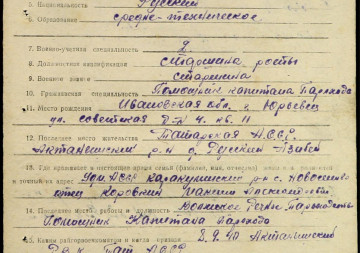 5. Национальность Русский
6. Образование средне-техническое
7. Военно-учетная специальность
8. Должностная квалификация старшина роты
9. Военное звание старшина
10. Гражданская специальность Помощник капитана Парохода
11. Место рождения Ивановская обл. г. Юрьевец
ул. советская д-н 4. кв. 11
12. Последнее место жительства Татарская АССР.
Актанышский р-н д. Русский Азибей
13. Где проживает и состоящие друг семьи (фамилия, имя, отчество)
и точный их адрес Удм. АССР р-н с.
отец Коровкин
14. Последнее место работы и должность
Помощник Капитана Парохода
15. Каким райгорвоенкоматом и когда призван 3.9.40 Актанышский
РВК Тат. АССР